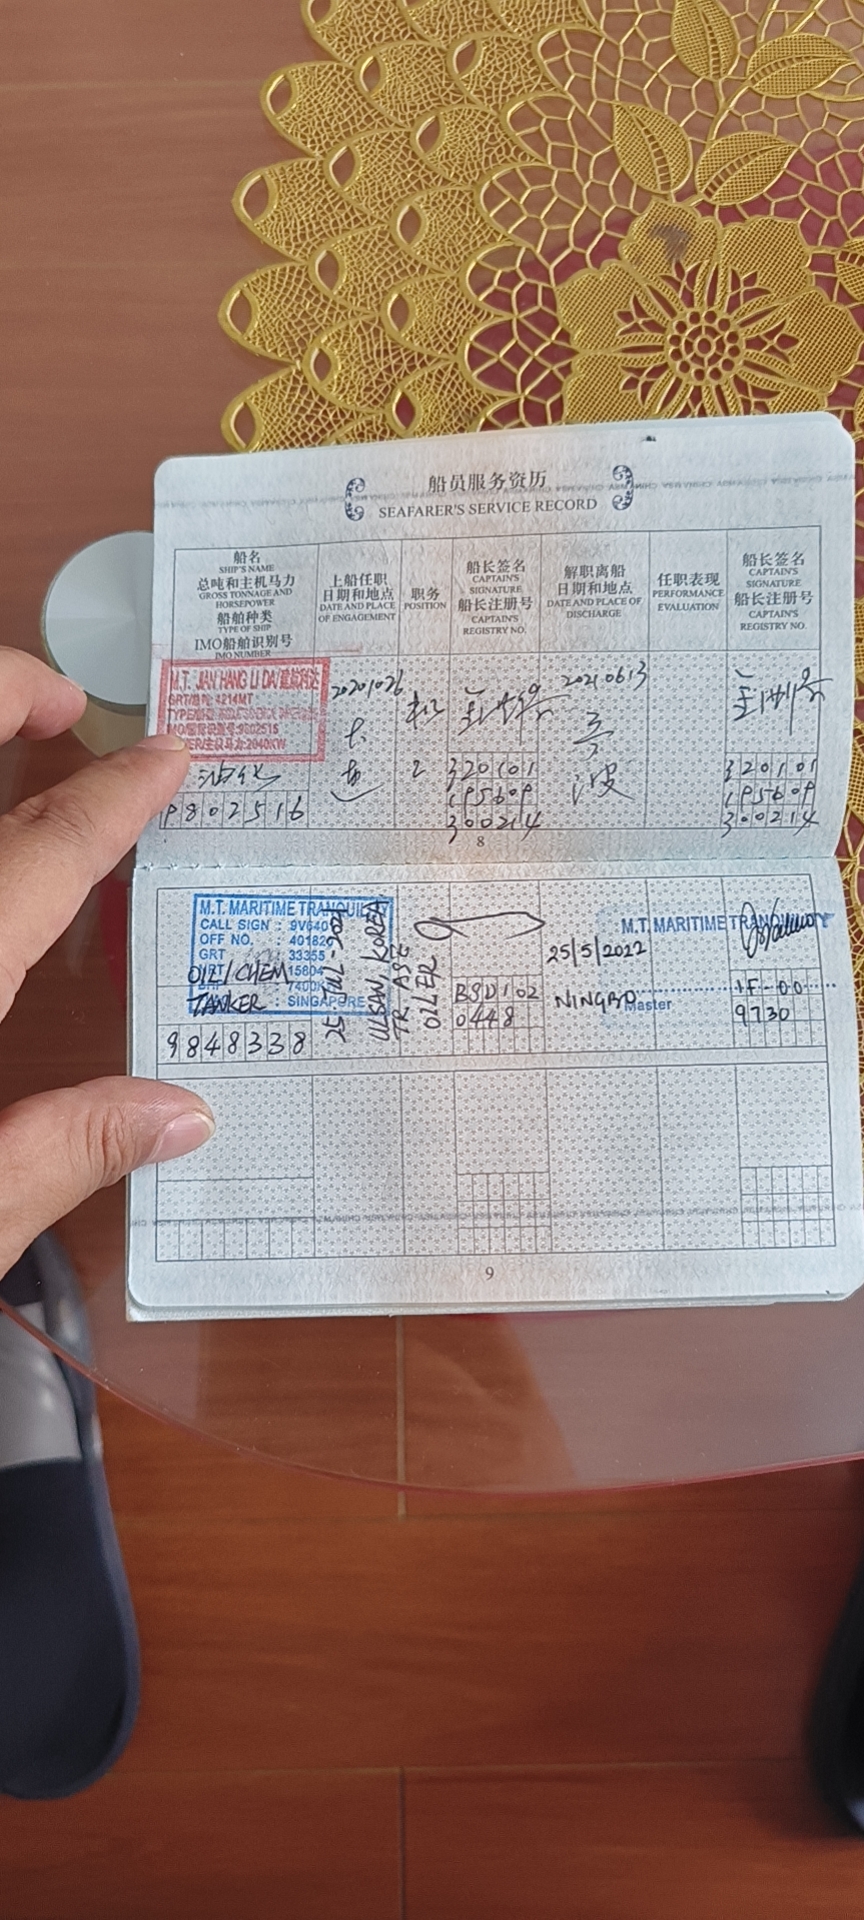 船员服务资历
SEAFARER'S SERVICE RECORD
船名
SHIP'S NAME
总吨和主机马力
GROSS TONNAGE AND
HORSEPOWER
船舶种类
TYPE OF SHIP
IMO船舶识别号
IMO NUMBER
上船任职
日期和地点
DATE AND PLACE
OF ENGAGEMENT
职务
POSITION
船长签名
CAPTAIN'S
SIGNATURE
船长注册号
CAPTAIN'S
REGISTRY NO.
解职离船
日期和地点
DATE AND PLACE OF
DISCHARGE
任职表现
PERFORMANCE
EVALUATION
船长签名
CAPTAIN'S
SIGNATURE
船长注册号
CAPTAIN'S
REGISTRY NO.
M.T. JIAN HANG LI DA/建航利达
4214MT
2040KW
油化
9802516
20201026
320101
195609
300214
20210613
波
320101
195609
300214
8
M.T. MARITIME TRANQUILITY
CALL SIGN : 9V640
OFF NO. : 401820
GRT : 33355
OIL/CHEM
TANKER : SINGAPORE
9848338
25-JUL-2021
ULSAN KOREA
OILER
BSD102
0448
25/5/2022
NINGBO
M.T. MARITIME TRANQUILITY
Master
1F-00
9730
9